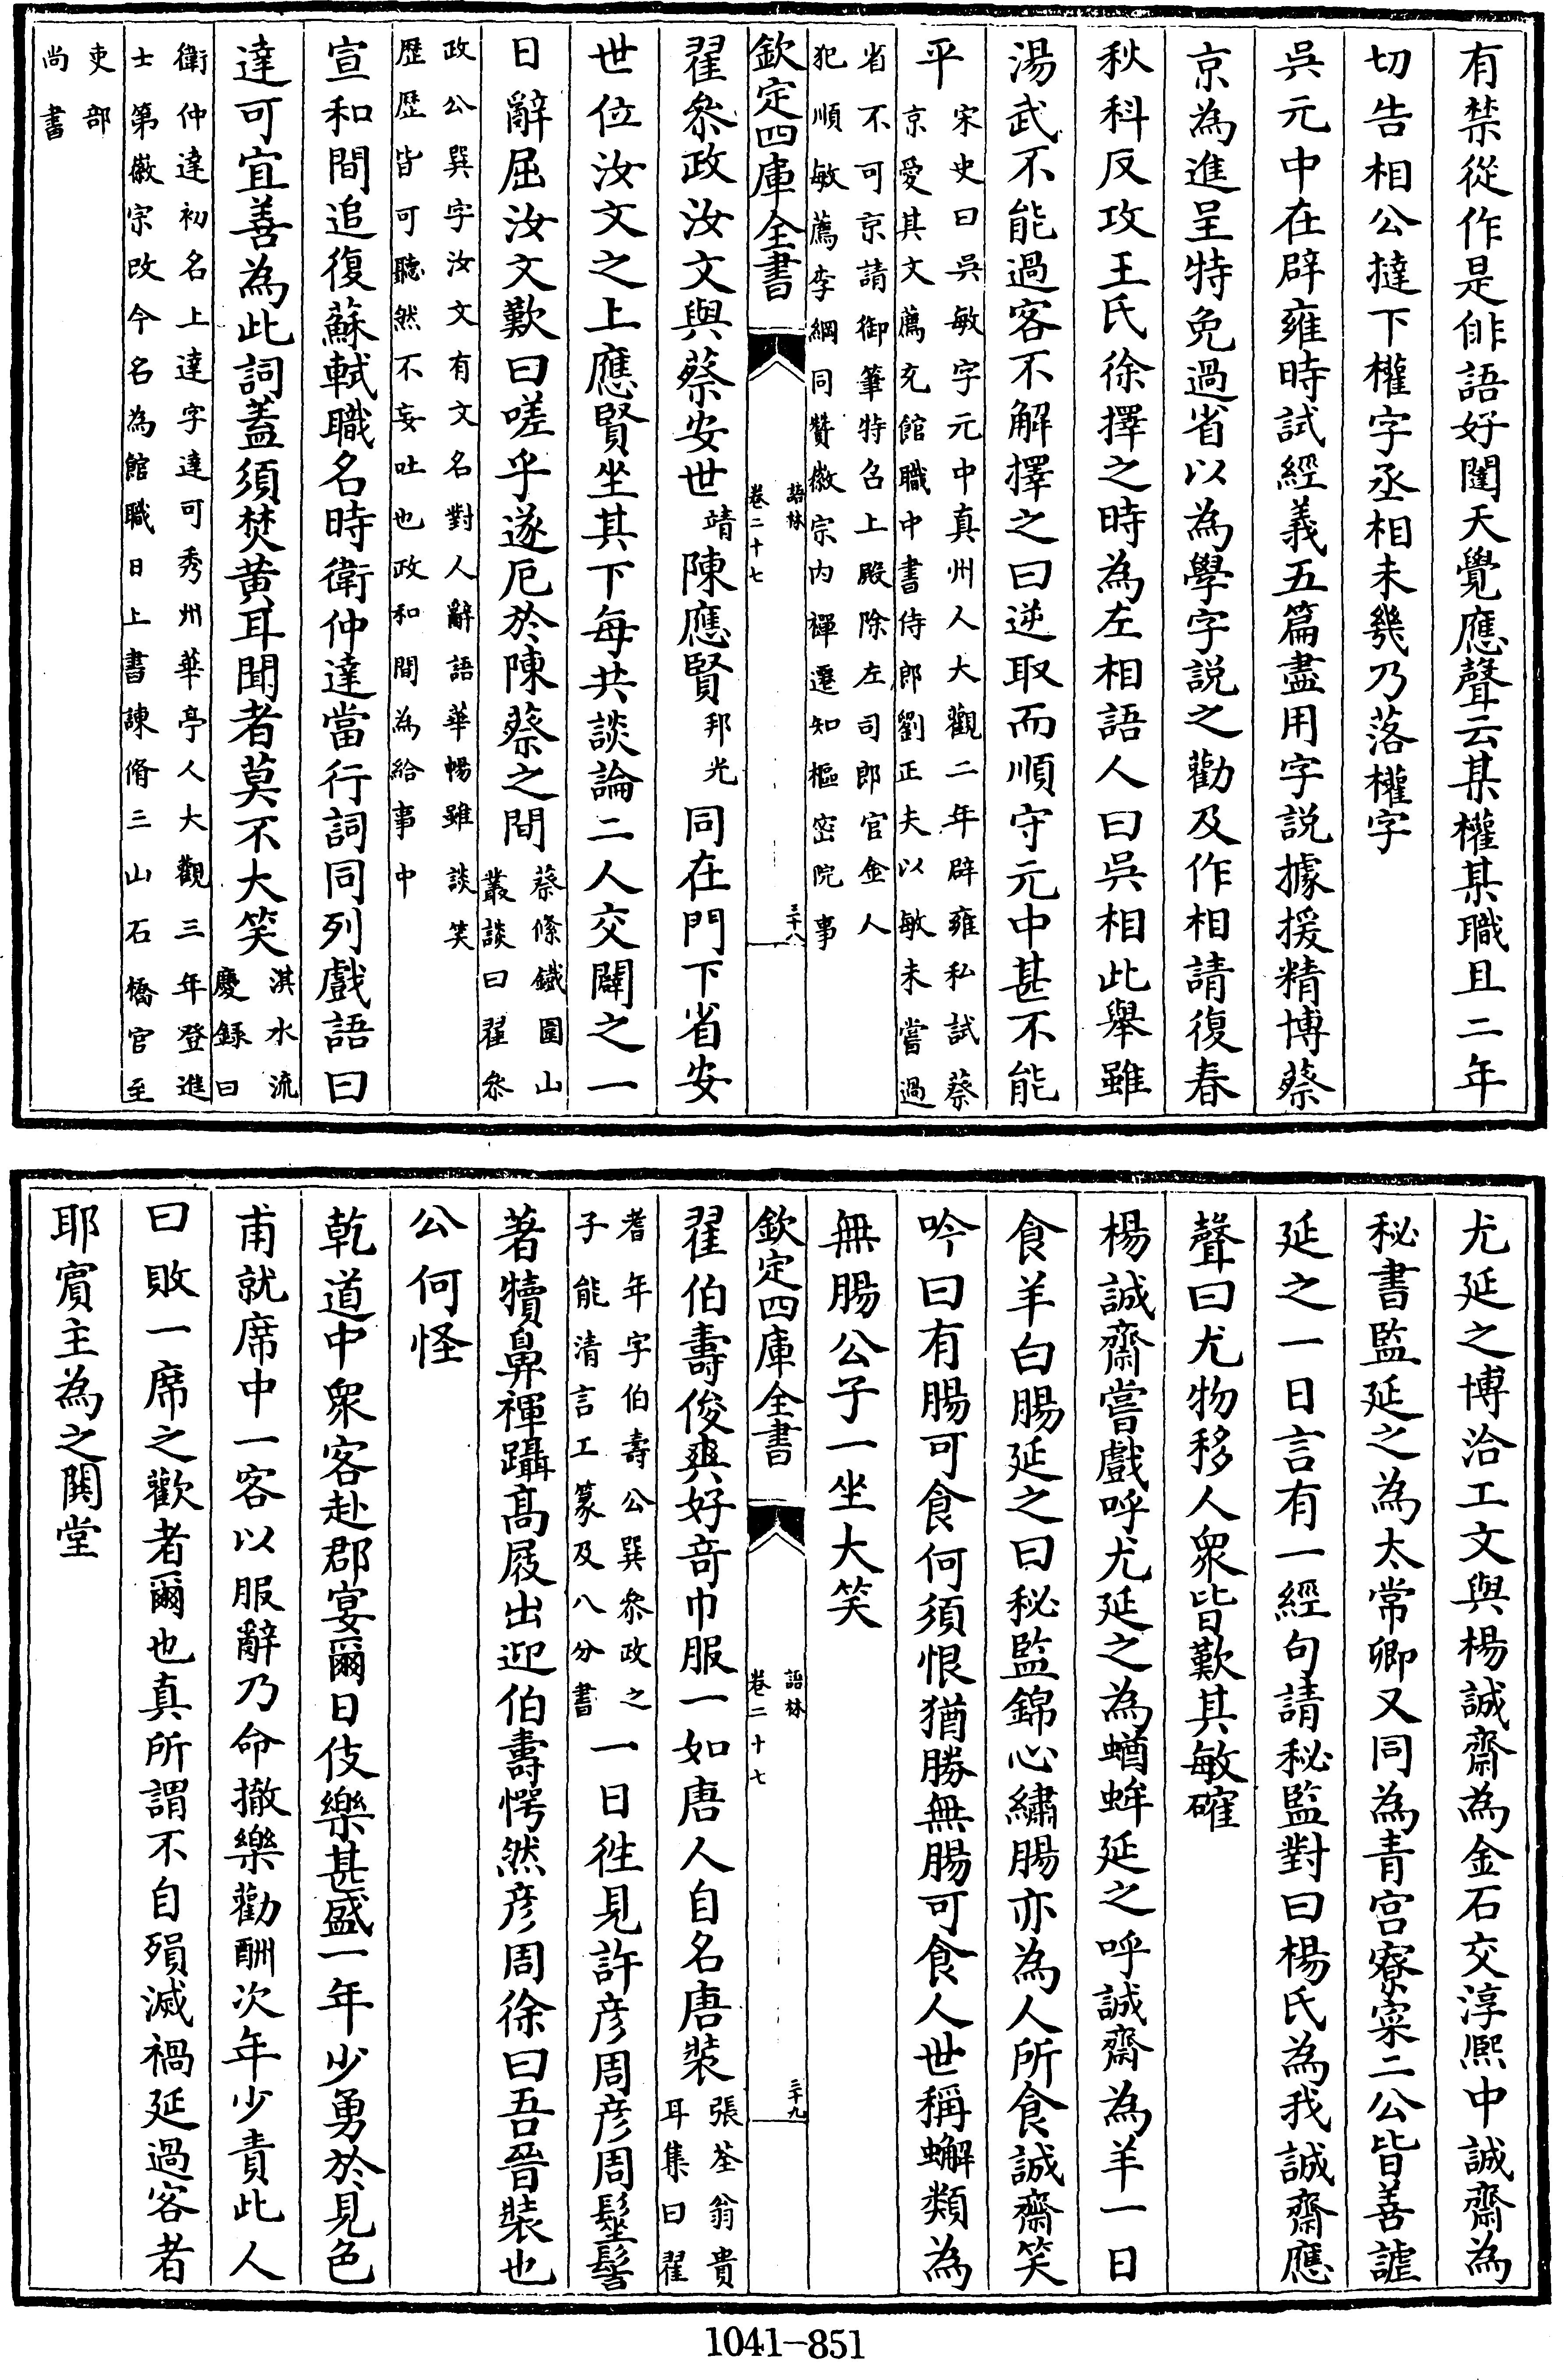 有禁從作是俳語好闥天覺應聲云某權某職且二年
切告相公撻下權字丞相未幾乃落權字
吳元中在辟雍時試經義五篇盡用字説據援精博蔡
京為進呈特免過省以為學字説之勸及作相請復春
秋科反攻王氏徐擇之時為左相語人曰吳相此舉雖
湯武不能過客不解擇之曰逆取而順守元中甚不能
平
宋史曰吳敏字元中真州人大觀二年辟雍私試蔡
京愛其文薦充館職中書侍郎劉正夫以敏未嘗過
省不可京請御筆特召上殿除左司郎官金人
犯順敏薦李綱同贊徽宗内禪遷知樞密院事
欽定四庫全書
語林
卷二十七
三十八
翟叅政汝文與蔡安世靖陳應賢邦光同在門下省安
世位汝文之上應賢坐其下每共談論二人交闢之一
日辭屈汝文歎曰嗟乎遂厄於陳蔡之間
蔡絛鐵圍山
叢談曰翟叅
政公巽字汝文有文名對人辭語華暢雖談笑
歷歷皆可聽然不妄吐也政和間為給事中
宣和間追復蘇軾職名時衛仲達當行詞同列戲語曰
達可宜善為此詞蓋須焚黄耳聞者莫不大笑
淇水流
慶録曰
衛仲達初名上達字達可秀州華亭人大觀三年登進
士第徽宗改今名為館職日上書諫脩三山石橋官至
吏部
尚書
尤延之博洽工文與楊誠齋為金石交淳熙中誠齋為
秘書監延之為太常卿又同為青宫寮寀二公皆善謔
延之一日言有一經句請秘監對曰楊氏為我誠齋應
聲曰尤物移人衆皆歎其敏確
楊誠齋嘗戲呼尤延之為蝤蛑延之呼誠齋為羊一日
食羊白腸延之曰秘監錦心繡腸亦為人所食誠齋笑
吟曰有腸可食何須恨猶勝無腸可食人世稱蠏類為
無腸公子一坐大笑
欽定四庫全書
語林
卷二十七
三十九
翟伯壽俊爽好竒巾服一如唐人自名唐裝
張荃翁貴
耳集曰翟
耆年字伯壽公巽叅政之
子能清言工篆及八分書
一日徃見許彦周彦周髽髻
著犢鼻褌躡髙屐出迎伯壽愕然彦周徐曰吾晉裝也
公何怪
乾道中衆客赴郡宴爾日伎樂甚盛一年少勇於見色
甫就席中一客以服辭乃命撤樂勸酬次年少責此人
曰敗一席之歡者爾也真所謂不自殞滅禍延過客者
耶賔主為之閧堂
1041-851